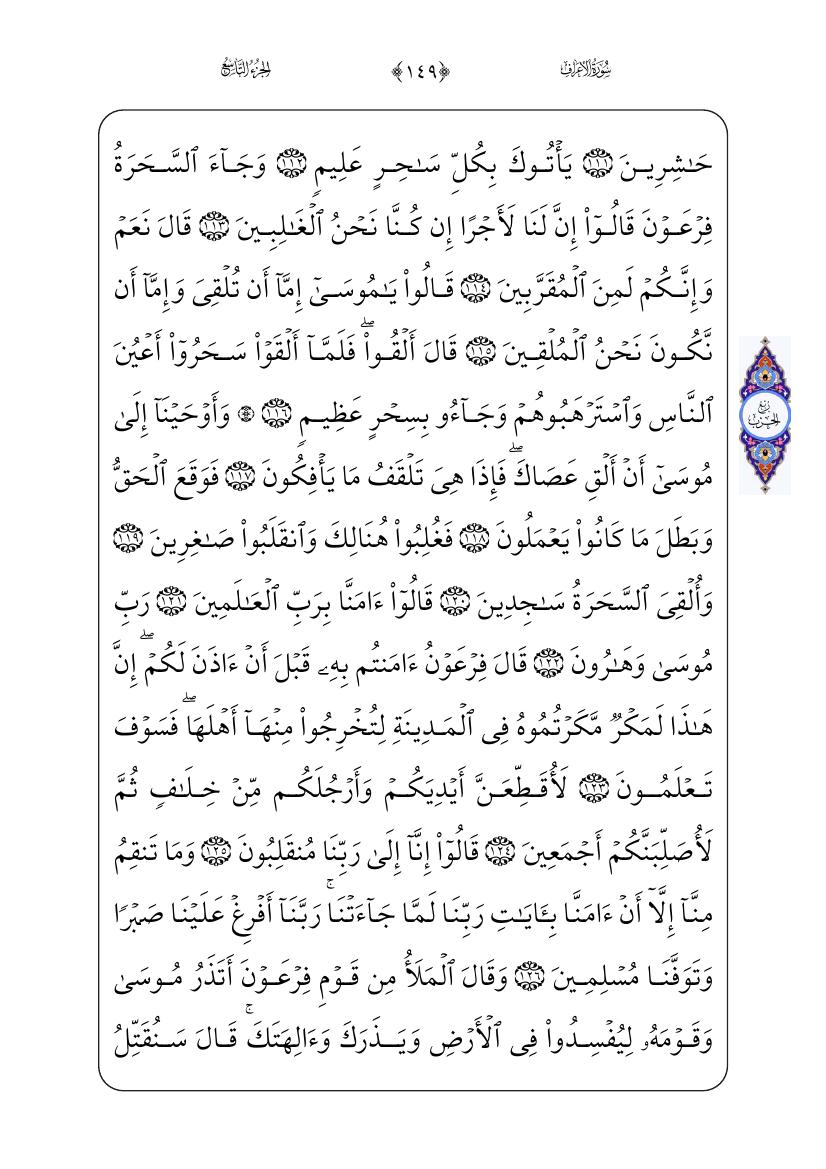 سُورَةُ الأَعۡرَافِ ﴿١٤٩﴾ الجُزۡءُ التَّاسِعُ
حَٰشِرِينَ ١١١ يَأۡتُوكَ بِكُلِّ سَٰحِرٍ عَلِيمٖ ١١٢ وَجَآءَ ٱلسَّحَرَةُ
فِرۡعَوۡنَ قَالُوٓاْ إِنَّ لَنَا لَأَجۡرًا إِن كُنَّا نَحۡنُ ٱلۡغَٰلِبِينَ ١١٣ قَالَ نَعَمۡ
وَإِنَّكُمۡ لَمِنَ ٱلۡمُقَرَّبِينَ ١١٤ قَالُواْ يَٰمُوسَىٰٓ إِمَّآ أَن تُلۡقِيَ وَإِمَّآ أَن
نَّكُونَ نَحۡنُ ٱلۡمُلۡقِينَ ١١٥ قَالَ أَلۡقُواْۖ فَلَمَّآ أَلۡقَوۡاْ سَحَرُوٓاْ أَعۡيُنَ
ٱلنَّاسِ وَٱسۡتَرۡهَبُوهُمۡ وَجَآءُو بِسِحۡرٍ عَظِيمٖ ١١٦ ۞ وَأَوۡحَيۡنَآ إِلَىٰ
رُبۡعُ الحِزۡبِ
مُوسَىٰٓ أَنۡ أَلۡقِ عَصَاكَۖ فَإِذَا هِيَ تَلۡقَفُ مَا يَأۡفِكُونَ ١١٧ فَوَقَعَ ٱلۡحَقُّ
وَبَطَلَ مَا كَانُواْ يَعۡمَلُونَ ١١٨ فَغُلِبُواْ هُنَالِكَ وَٱنقَلَبُواْ صَٰغِرِينَ ١١٩
وَأُلۡقِيَ ٱلسَّحَرَةُ سَٰجِدِينَ ١٢٠ قَالُوٓاْ ءَامَنَّا بِرَبِّ ٱلۡعَٰلَمِينَ ١٢١ رَبِّ
مُوسَىٰ وَهَٰرُونَ ١٢٢ قَالَ فِرۡعَوۡنُ ءَامَنتُم بِهِۦ قَبۡلَ أَنۡ ءَاذَنَ لَكُمۡۖ إِنَّ
هَٰذَا لَمَكۡرٞ مَّكَرۡتُمُوهُ فِي ٱلۡمَدِينَةِ لِتُخۡرِجُواْ مِنۡهَآ أَهۡلَهَاۖ فَسَوۡفَ
تَعۡلَمُونَ ١٢٣ لَأُقَطِّعَنَّ أَيۡدِيَكُمۡ وَأَرۡجُلَكُم مِّنۡ خِلَٰفٖ ثُمَّ
لَأُصَلِّبَنَّكُمۡ أَجۡمَعِينَ ١٢٤ قَالُوٓاْ إِنَّآ إِلَىٰ رَبِّنَا مُنقَلِبُونَ ١٢٥ وَمَا تَنقِمُ
مِنَّآ إِلَّآ أَنۡ ءَامَنَّا بِـَٔايَٰتِ رَبِّنَا لَمَّا جَآءَتۡنَاۚ رَبَّنَآ أَفۡرِغۡ عَلَيۡنَا صَبۡرٗا
وَتَوَفَّنَا مُسۡلِمِينَ ١٢٦ وَقَالَ ٱلۡمَلَأُ مِن قَوۡمِ فِرۡعَوۡنَ أَتَذَرُ مُوسَىٰ
وَقَوۡمَهُۥ لِيُفۡسِدُواْ فِي ٱلۡأَرۡضِ وَيَذَرَكَ وَءَالِهَتَكَۚ قَالَ سَنُقَتِّلُ